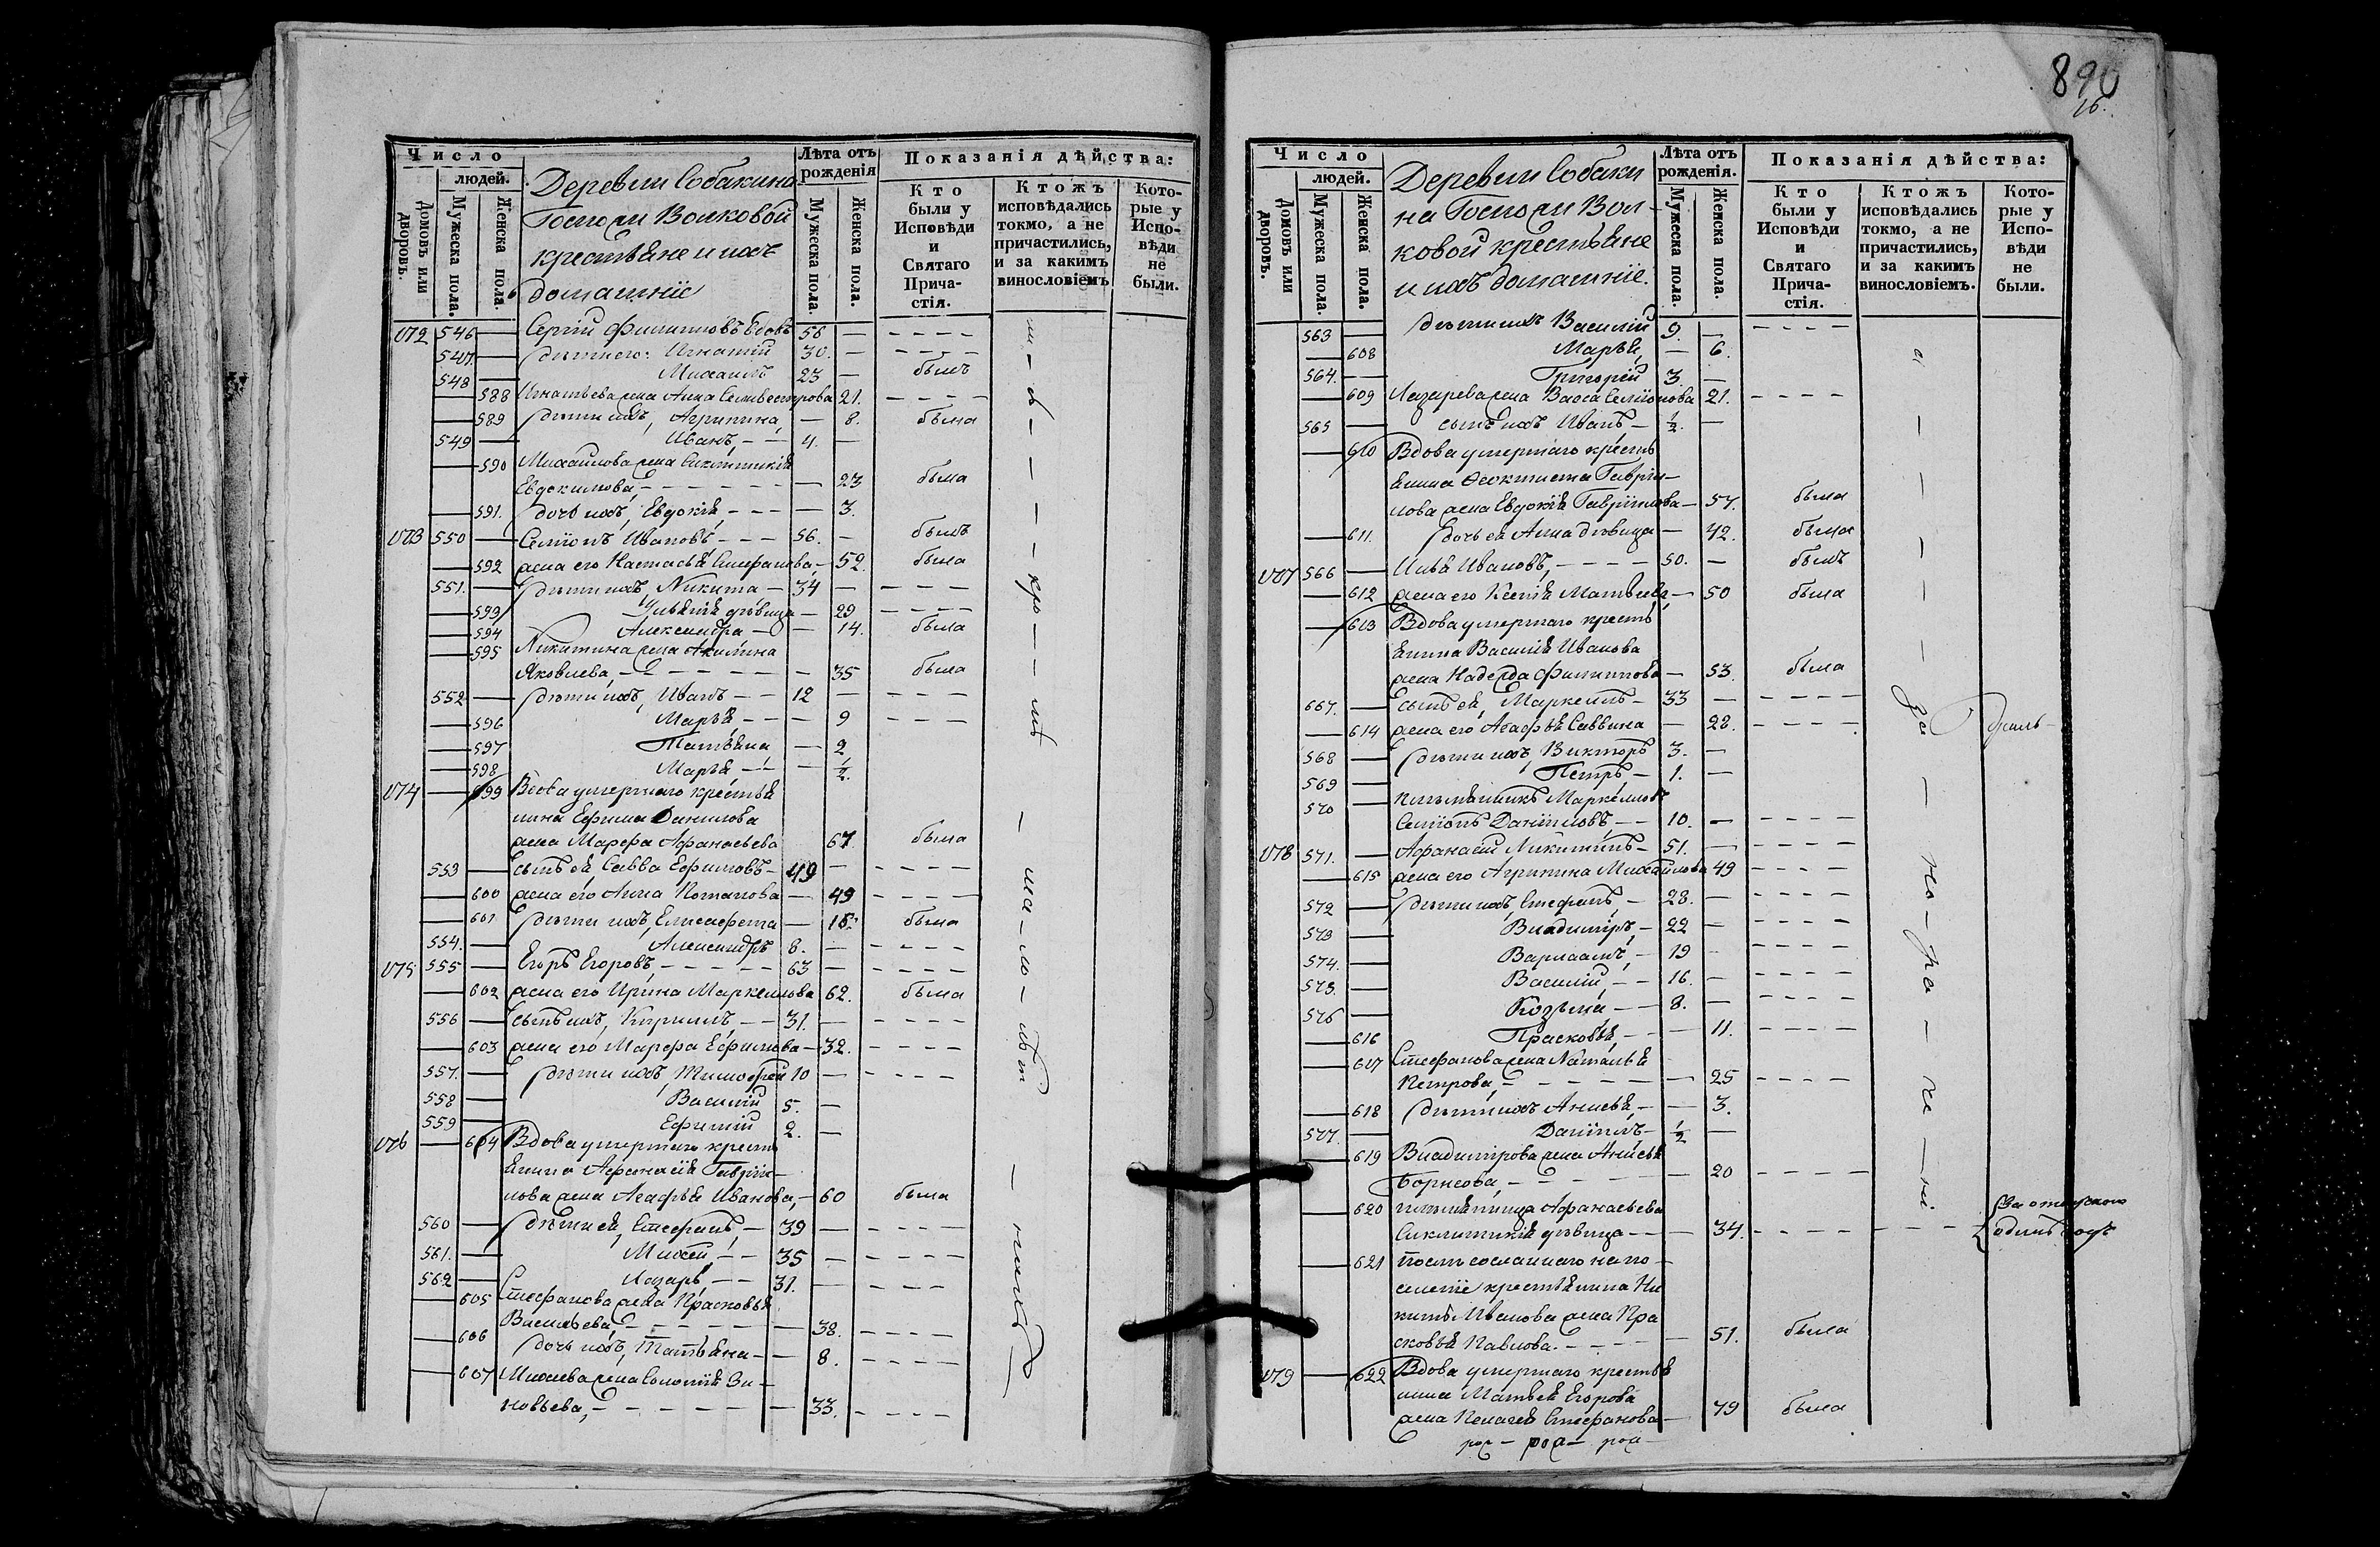 890
об.
Число
людей.
Домовъ или дворовъ.
Мужеска пола.
Женска пола.
Деревни Собакина
Госпожи Волковой
крестьяне и ихъ
домашніе
Лѣта отъ рожденія
Мужеска пола.
Женска пола.
Показанія дѣйства:
Кто были у Исповѣди и Святаго Прича-стія.
Ктожъ исповѣдались токмо, а не причастились, и за какимъ винословіемъ
Кото-рые у Испо-вѣди не были.
172 546 — Сергій Филипповъ вдовъ 58 — - - - -
547 — дѣти его: Игнатій 30. — - - - -
548 — Михаилъ 23 — былъ
— 588 Игнатьева жена Анна Селивестрова 21. - - - -
— 589 дѣти ихъ, Агрипина, — 8. была
549 — Иванъ, - - 4. —
— 590 Михайлова жена Сиклитикія
Евдокимова, - - - — 23 была
— 591. дочь ихъ, Евдокія, - - - — 3.
173 550 — Семіонъ Ивановъ - - - 56. — былъ
— 592 жена его Настасья Стефанова, — 52. была
551. — дѣти ихъ, Никита — 34 — - - - -
— 593 Ульянія дѣвица — 29 - - - -
— 594 Александра — — 14. была
— 595 Никитина жена Акилина
Яковлева, - - - — 35 была
552 — дѣти ихъ, Иванъ - - 12 — - - - -
— 596 Марья - - - 9 - - - -
— 597 Татьяна — 2
— 598 Марья - - — 1/2.
174 — 599 Вдова умершаго крестья
нина Ефима Данилова
жена Марфа Афанасьева 67. была
553 — сынъ ея Савва Ефимовъ - 49 — - - - -
— 600 жена его Анна Потапова — 49 - - - -
— 601 дѣти ихъ, Елисавета — 15. была
554. — Александръ 8. — - - - -
175 555 — Егоръ Егоровъ, - - - 63 — - - - -
— 602 жена его Ирина Маркеллова 62. была
556 — сынъ ихъ, Кириллъ, - - 31. — - - - -
— 603 жена его Марфа Ефимова — 32. - - - -
557. — дѣти ихъ, Тимофей 10 — - - - -
558 — Василій 5. —
559 — Ефимій 2. —
176 — 604 Вдова умершаго кресть
янина Афанасія Гаврі-
лова жена Агафья Иванова, — 60 была
560 — дѣти ея, Стефанъ, — 39 — - - - -
561. — Михей, - - 35 — - - - -
562 — Лазарь, - - 31. — - - - -
— 605 Стефанова жена Прасковья
Васильева, - - - — 38. - - - -
— 606 дочь ихъ, Татьяна - — 8. - - - -
— 607 Михеева жена Соломія Зи-
новьева, - - - — 33. - - - -
Число
людей.
Домовъ или дворовъ.
Мужеска пола.
Женска пола.
Деревни Собаки
на Госпожи Вол-
ковой крестьяне
и ихъ домашніе.
Лѣта отъ рожденія.
Мужеска пола.
Женска пола.
Показанія дѣйства:
Кто были у Исповѣди и Святаго Прича-стія.
Ктожъ исповѣдались токмо, а не причастились, и за какимъ винословіемъ.
Кото-рые у Испо-вѣди не были.
563 — дѣти ихъ Василій 9. — - - - -
— 608 Марья, — 6.
564. — Григорій 3. —
— 609 Лазарева жена Васса Семіонова 21. - - - -
565 — сынъ ихъ Иванъ — 1/2. —
— 610 Вдова умершаго кресть
янина Феоктиста Гаврі-
лова жена Евдокія Гаврілова — 57. была
— 611. дочь ея Анна дѣвица — 42. была
177 566 — Илья Ивановъ, - - - 50. — былъ
— 612 жена его Ксенія Матвѣева, — 50 была
— 613 Вдова умершаго кресть
янина Василія Иванова
жена Надежда Филиппова — 53. была
567. — Сынъ ея, Маркеллъ — 33 — - - - -
— 614 жена его Агафья Саввина — 28. - - - -
568 — дѣти ихъ, Викторъ 3. —
569 — Петръ, — 1. —
570 — племянникъ Маркелловъ
Семіонъ Даніиловъ, - - 10. — - - - -
178 571. — Афанасій Никитинъ — 51. — - - - -
— 615 жена его Агрипина Михайлова 49 - - - -
572 — дѣти ихъ, Стефанъ, — 28. — - - - -
573 — Владиміръ, — 22 — - - - -
574. — Варлаамъ, — 19 - - - -
575. — Василій, - - 16. — - - - -
576 — Козьма — — 8. — - - - -
— 616 Прасковья, - - — 11. - - - -
— 617 Стефанова жена Наталья
Петрова, - - - — 25 - - - -
— 618 дѣти ихъ Анисья, - — 3.
577. — Даніилъ - 1/2 —
— 619 Владимірова жена Анисья
Борисова, - - - — 20 - - - -
— 620 племянница Афанасьева
Сиклитикія дѣвица - - — 34. - - - -
— 621 Посль сосланнаго на по-
селеніе крестьянина Ни
киты Иванова жена Пра
сковья Павлова. - - - — 51. была
179 — 622 Вдова умершаго крестья
нина Матвея Егорова
жена Пелагея Стефанова — 79 была